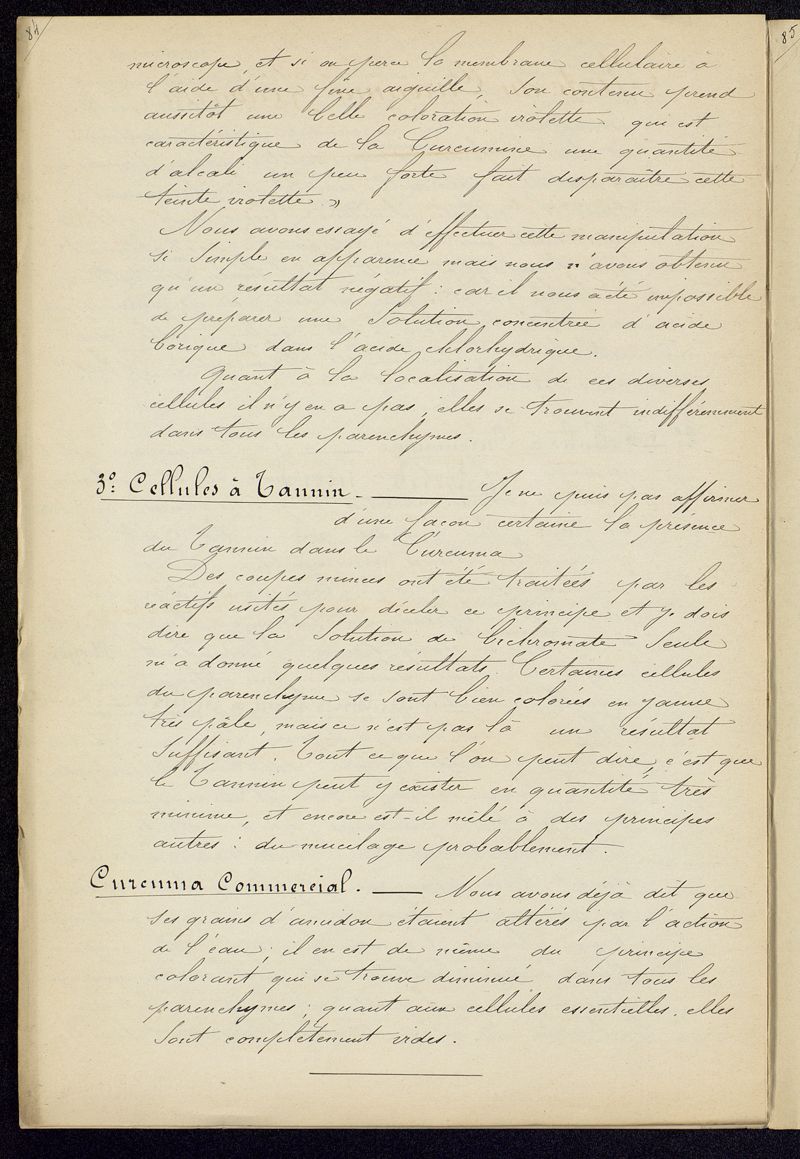 84
85
microscope, et si on perce la membrane cellulaire à
l'aide d'une fine aiguille, son contenu prend
aussitôt une belle coloration violette qui est
caractéristique de la Curcumine une quantité
d'alcali un peu forte fait disparaître cette
teinte violette »
Nous avons essayé d'effectuer cette manipulation
si simple en apparence mais nous n'avons obtenu
qu'un résultat négatif : car il nous a été impossible
de préparer une solution concentrée d'acide
borique dans l'acide chlorhydrique.
Quant à la localisation de ces diverses
cellules il n'y en a pas, elles se trouvent indifféremment
dans tous les parenchymes.
3º: Cellules à Tannin. — Je ne puis pas affirmer
d'une façon certaine la présence
du Tannin dans le Curcuma
Des coupes minces ont été traitées par les
réactifs usités pour déceler ce principe et je dois
dire que la solution de bichromate seule
m'a donné quelques résultats. Certaines cellules
du parenchyme se sont bien colorées en jaune
très pâle, mais ce n'est pas là un résultat
suffisant. Tout ce que l'on peut dire, c'est que
le Tannin peut y exister en quantité très
minime, et encore est-il mêlé à des principes
autres : du mucilage probablement.
Curcuma Commercial. — Nous avons déjà dit que
ses grains d'amidon étaient altérés par l'action
de l'eau; il en est de même du principe
colorant qui se trouve diminué dans tous les
parenchymes; quant aux cellules essentielles, elles
sont complètement vides.